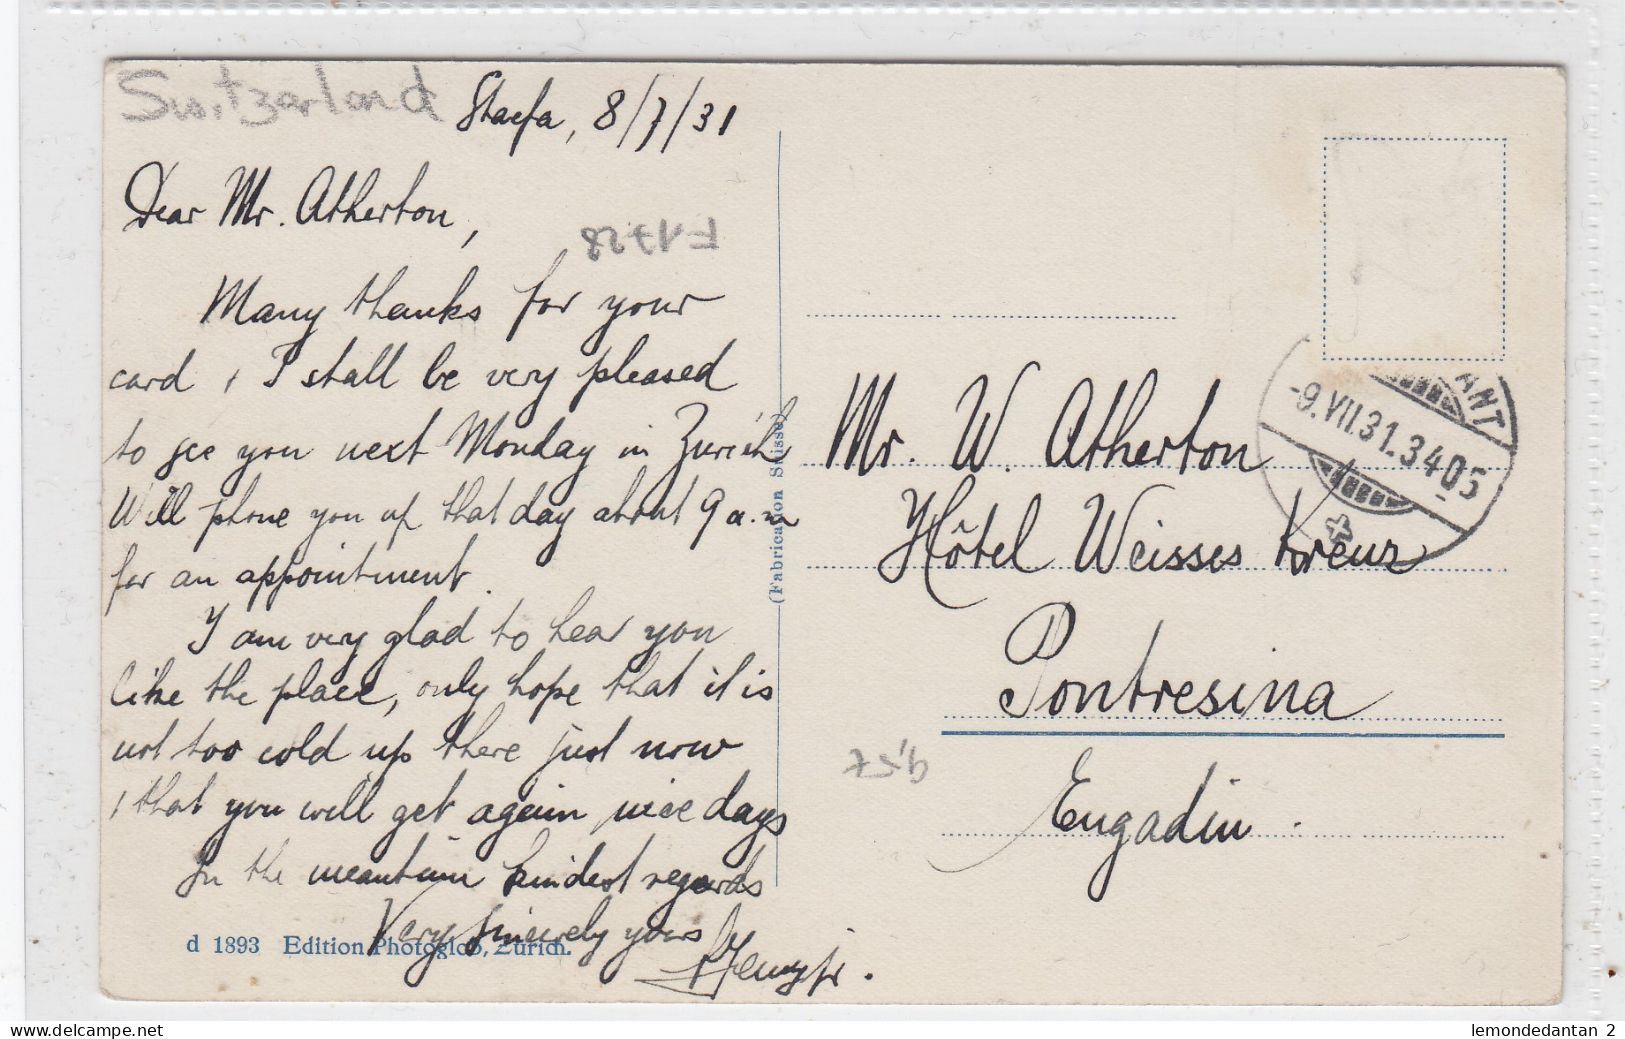 Switzerland
Staefa, 8/7/31
Dear Mr. Atherton,
F1728
Many thanks for your
card, I shall be very pleased
to see you next Monday in Zurich
Will phone you up that day about 9 a.m
for an appointment.
I am very glad to hear you
like the place, only hope that it is
not too cold up there just now
& that you will get again nice days
In the meantime kindest regards
Very sincerely yours
d 1893 Edition Photoglob, Zürich.
(Fabrication Suisse)
ANT
-9.VII.31.3405
Mr. W. Atherton
Hôtel Weisses Kreuz
Pontresina
Engadin.
lemondedantan 2